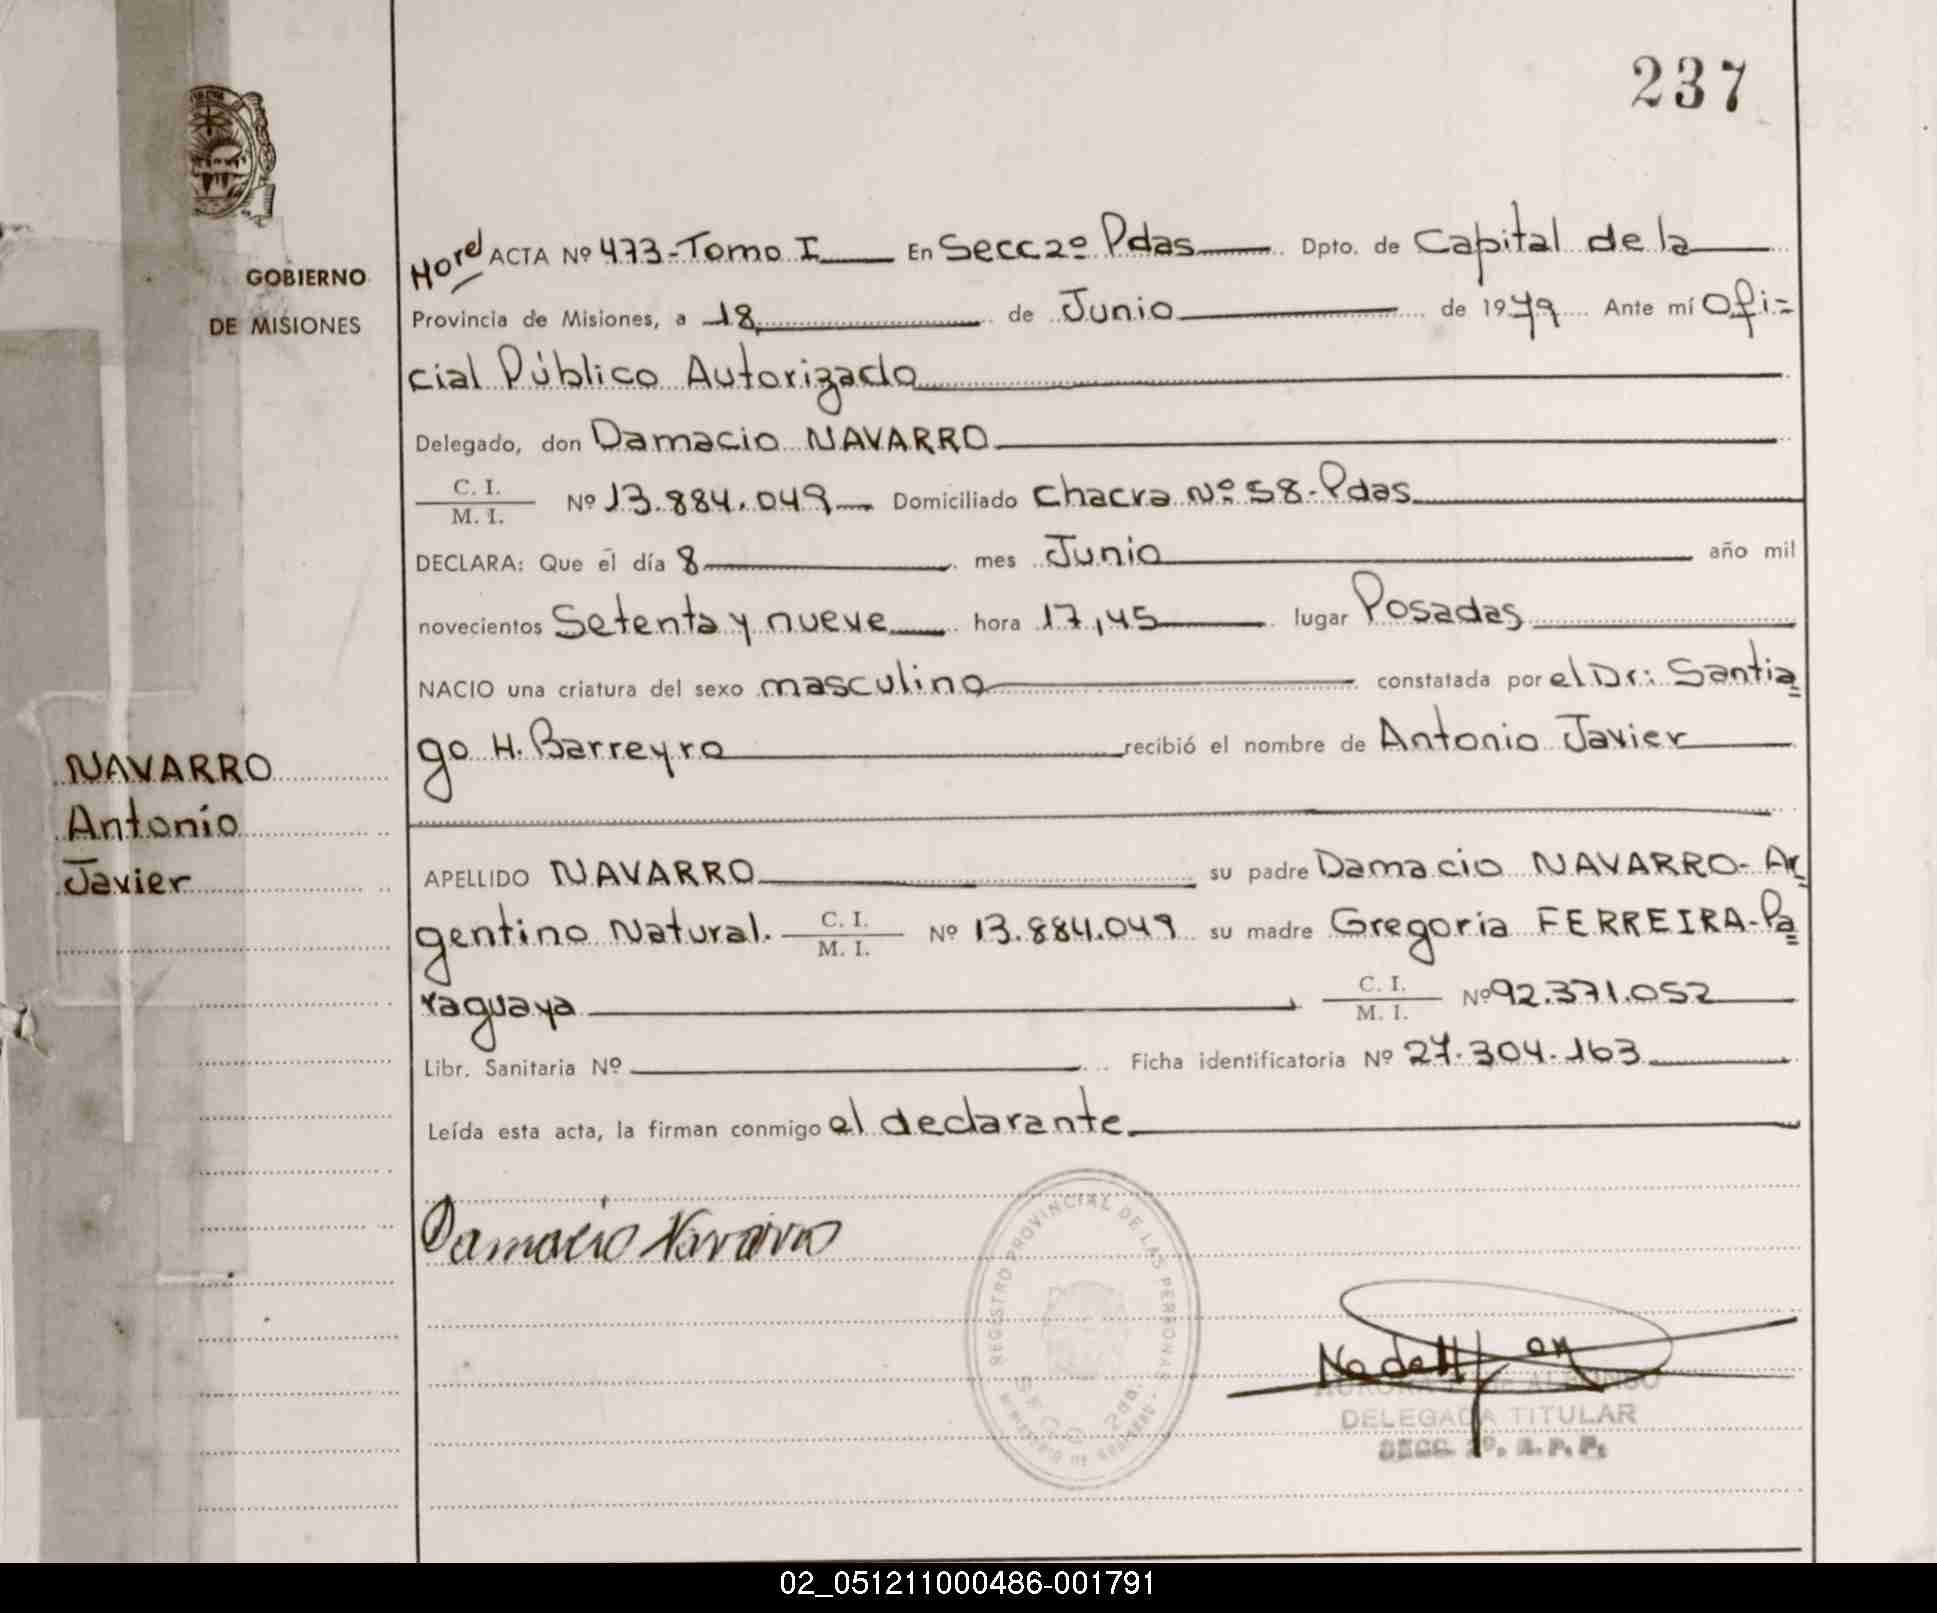 237
GOBIERNO
DE MISIONES
ACTA Nº 473-Tomo I En Secc 2º Pdas Dpto. de Capital de la
Provincia de Misiones, a 18 de Junio de 1979 Ante mí Ofi=
cial Público Autorizado
Delegado, don Damacio NAVARRO
C. I.
M. I. Nº 13.884.049 Domiciliado Chacra Nº 58-Pdas
DECLARA: Que el día 8 mes Junio año mil
novecientos Setenta y nueve hora 17,45 lugar Posadas
NACIO una criatura del sexo masculino constatada por el Dr: Santia=
go H. Barreyro recibió el nombre de Antonio Javier
NAVARRO
Antonio
Javier
APELLIDO NAVARRO su padre Damacio NAVARRO- Ar=
gentino Natural. C. I. M. I. Nº 13.884.049 su madre Gregoria FERREIRA-Pa=
raguaya C. I. M. I. Nº 92.371.052
Libr. Sanitaria Nº Ficha identificatoria Nº 27.304.163
Leída esta acta, la firman conmigo el declarante
Damacio Navarro
REGISTRO PROVINCIAL DE LAS PERSONAS
SECC. 2da.
MINISTERIO DE GOBIERNO
DELEGADA TITULAR
SECC. 2º. R. P. P.
02_051211000486-001791